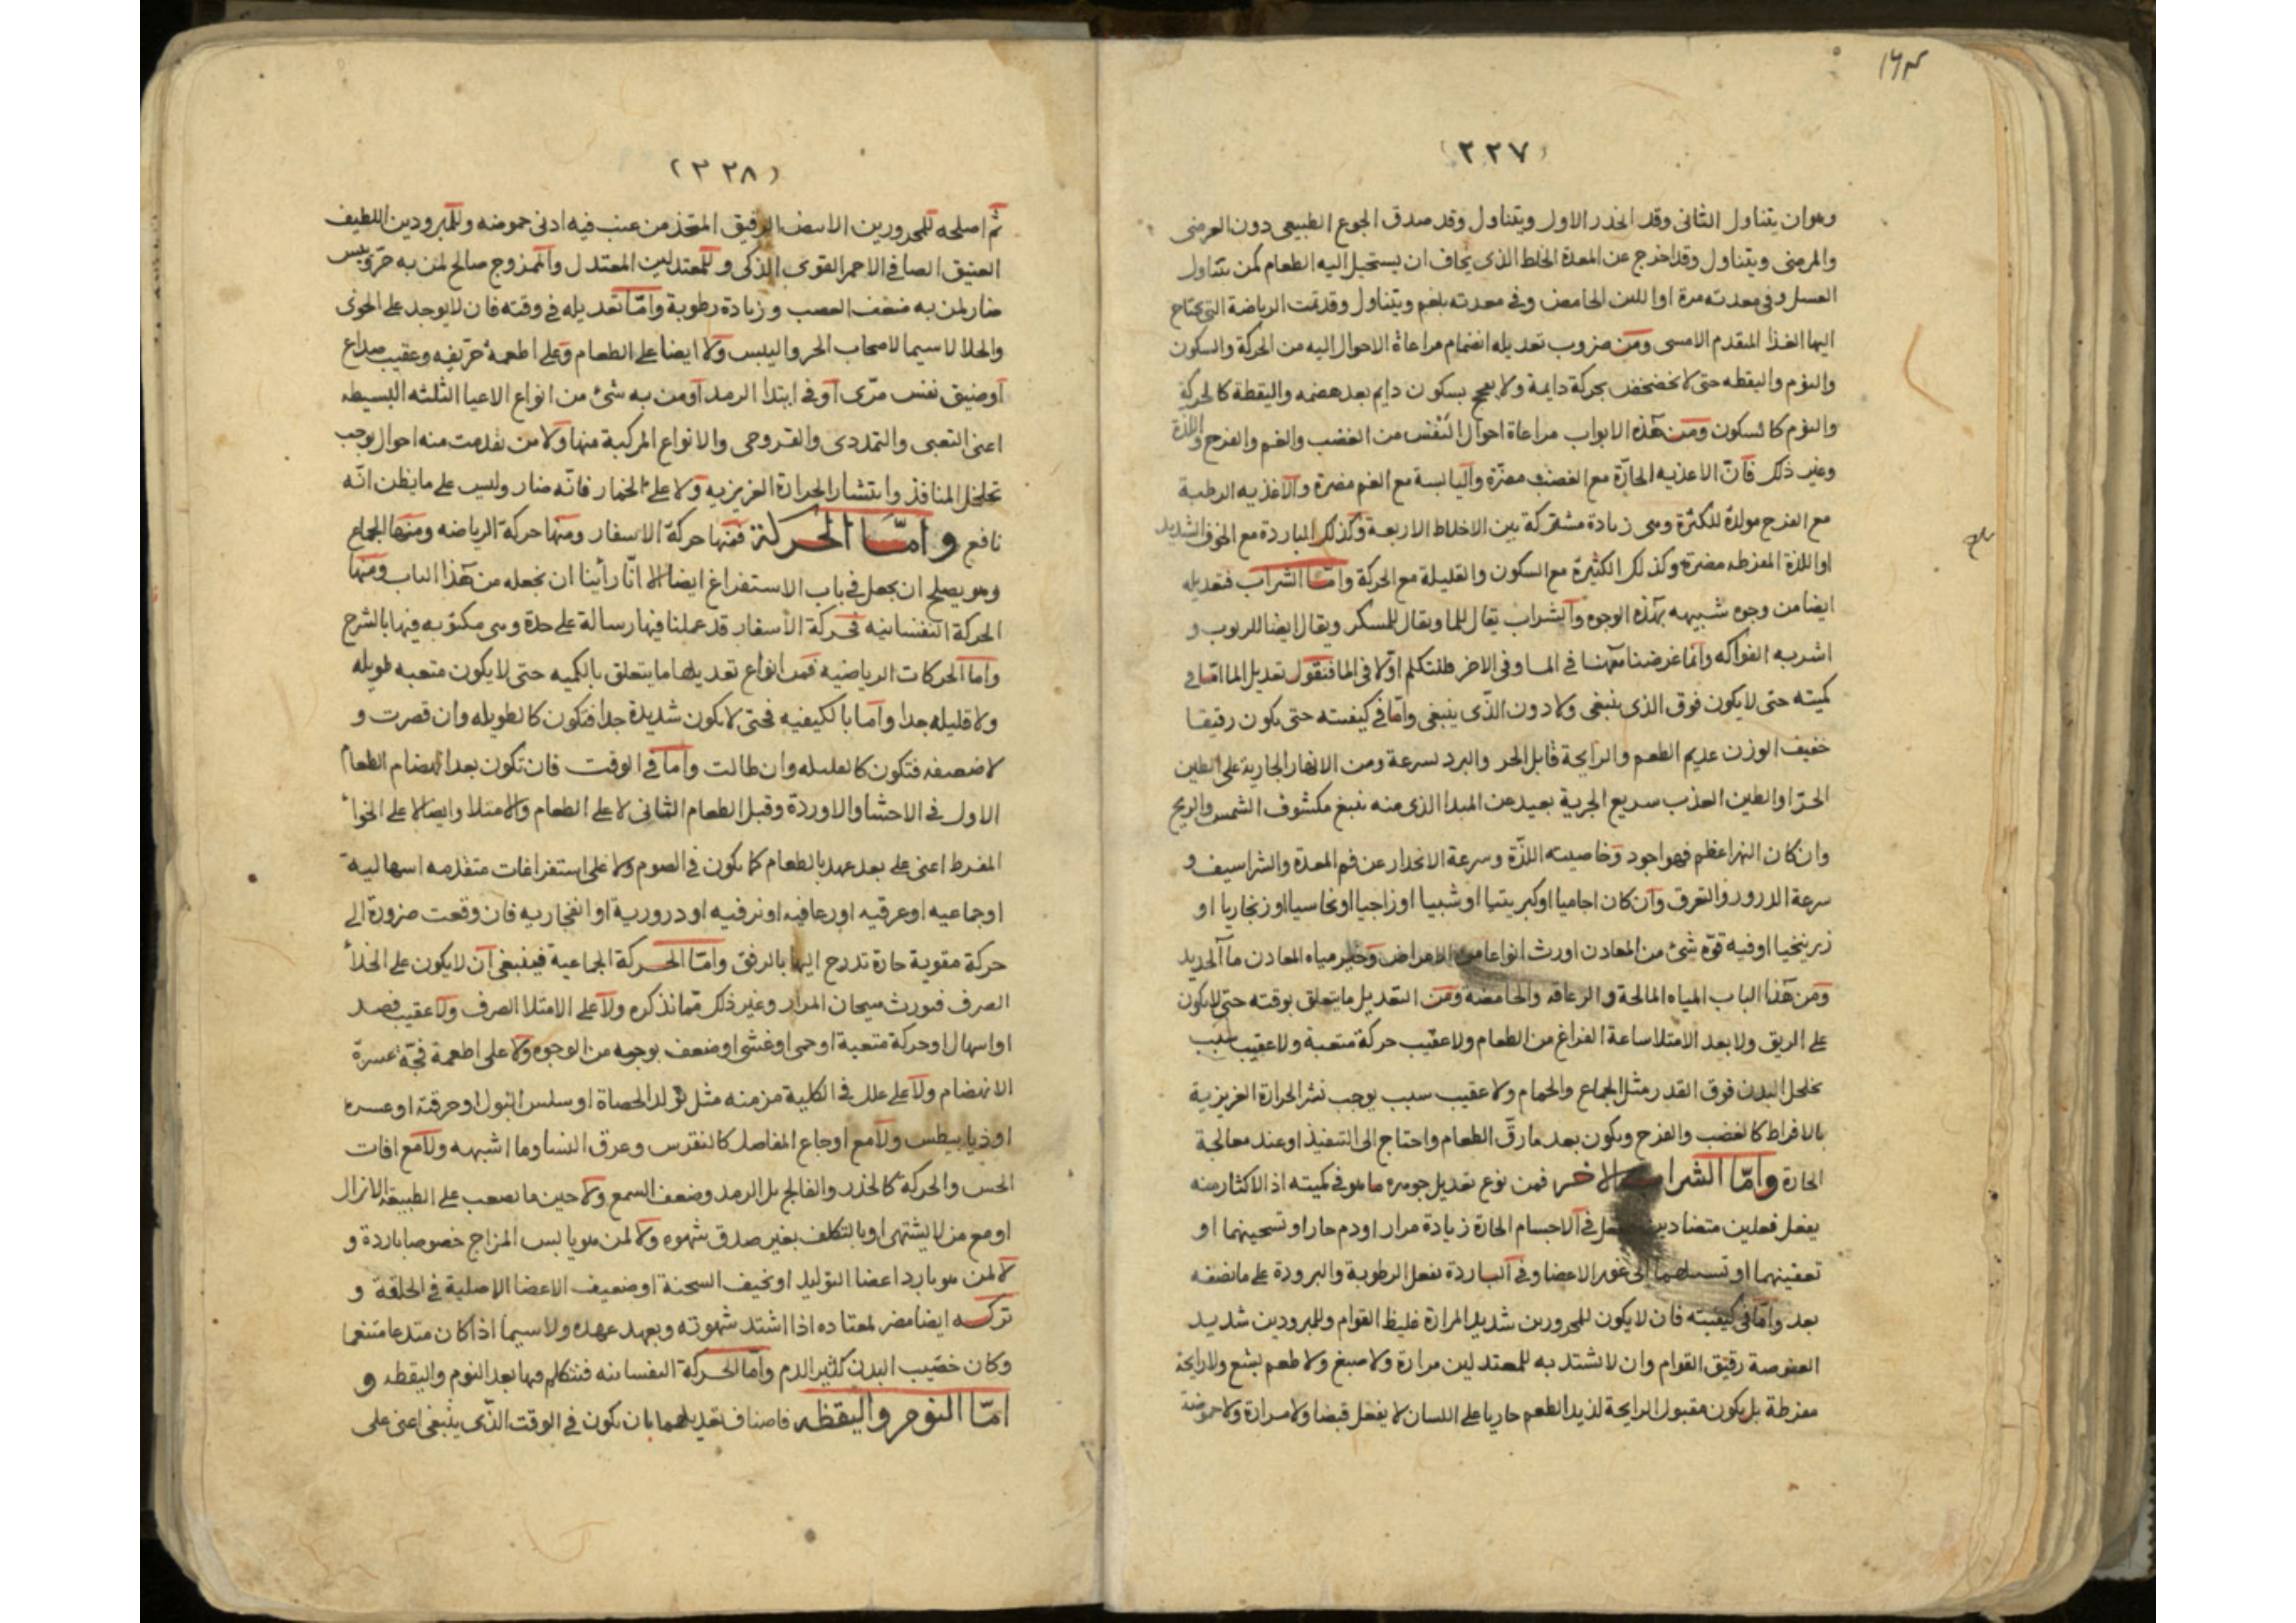 ١٦٣
(٢٢٧)
وهو ان يتناول الثانى وقد انحدر الاول ويتناول وقد صدق الجوع الطبيعى دون العرضى
والمرضى ويتناول وقد اخرج عن المعدة الخلط الذى يخاف ان يستحيل اليه الطعام كمن يتناول
العسل وفى معدته مرة او اللبن الحامض وفى معدته بلغم ويتناول وقد تمت الرياضة التى يحتاج
اليها الغذا المتقدم الامسى ومن ضروب تعديله انضمام مراعاة الاحوال اليه من الحركة والسكون
والنوم واليقظه حتى لا تخضخض بحركة دايمة ولا بسكون دايم بعد هضمه واليقظة كالحركة
والنوم كالسكون ومن هذه الابواب مراعاة احوال النفس من الغضب والغم والفرح واللذة
وغير ذلك فان الاغذيه الحارّة مع الغضب مضرّة واليابسة مع الغم مضرة والاغذيه الرطبة
مع الفرح مولدة للكثرة وهى زيادة مشتركة بين الاخلاط الاربعة وكذلك الباردة مع الخوف الشديد
او اللذة المفرطه مضرة وكذلك الكثيرة مع السكون والقليلة مع الحركة وامّا الشراب فتعديله
ايضا من وجوه شبيهه بهذه الوجوه والشراب يقال للما ويقال للمسكر ويقال ايضا للربوب و
اشربه الفواكه وانما غرضنا ههنا فى الما وفى الاخر فلنتكلم اوّلا فى الما فنقول تعديل الما امّا فى
كميته حتى لا يكون فوق الذى ينبغى ولا دون الذّى ينبغى وامّا فى كيفيته حتى يكون رقيقا
خفيف الوزن عديم الطعم والرايحة قابل الحر والبرد بسرعة ومن الانهار الجارية على الطين
الحرّ او الطين العذب سريع الجرية بعيد عن المبدا الذى منه ينبع مكشوف الشمس والريح
وان كان النهر اعظم فهو اجود وخاصيته اللذّة وسرعة الانحدار عن فم المعدة والشراسيف و
سرعة الدرور والتعرق وان كان اجاميا او كبريتيا او شبيا او زاجيا او نحاسيا او زنجاريا او
زرنيخيا او فيه قوّه شئ من المعادن اورث انواعا من الامراض وخير مياه المعادن مآ الحديد
ومن هذا الباب المياه المالحة و الزعاقه والحامضة ومن التعديل ما يتعلق بوقته حتى لا يكون
على الريق ولا بعد الامتلا ساعة الفراغ من الطعام ولا عقيب حركة متعبة ولا عقيب سبب
يخلخل البدن فوق القدر مثل الجماع والحمام ولا عقيب سبب يوجب نشر الحرارة الغريزية
بالافراط كالغضب والفرح ويكون بعد ما رقّ الطعام واحتاج الى التنفيذ او عند معالجة
الحارة وامّا الشراب الاخر فمن نوع تعديل جوهره ما هو فى كميته اذ الاكثار منه
يفعل فعلين متضادين يفعل فى الاجسام الحارة زيادة مرار او دم حار او تسخينهما او
تعفينهما او تسييلهما الى غور الاعضا وفى الباردة يفعل الرطوبة والبرودة على ما نصفه
بعد وامّا فى كيفيته فان لا يكون للمحرورين شديد المرارة غليظ القوام وللمبرودين شديد
العفوصة رقيق القوام وان لا تشتد به للمعتدلين مرارة ولا صبغ ولا طعم بشع ولا رايحة
مفرطة بل يكون مقبول الرايحة لذيذ الطعم جاريا على اللسان لا يفعل قبضا ولا مرارة ولا حموضة
(٢٢٨)
ثم اصلحه للمحرورين الابيض الرقيق المتخذ من عنب فيه ادنى حموضه وللمبرودين اللطيف
العتيق الصافى الاحمر القوى الذكى و للمعتدلين المعتدل والممزوج صالح لمن به حرّ ويبس
ضار لمن به ضعف العصب وزيادة رطوبة وامّا تعديله فى وقته فان لا يوجد على الخوى
والخلا لا سيما لاصحاب الحر واليبس ولا ايضا على الطعام وعلى اطعمة حرّيفه وعقيب صداع
او ضيق نفس مرّى او فى ابتدا الرمد او من به شئ من انواع الاعيا الثلثه البسيطه
اعنى التعبى والتمددى والقروحى والانواع المركبة منها ولا من تقدمت منه احوال يوجب
تخلخل المنافذ وانتشار الحرارة الغريزيه ولا على الخمار فانّه ضار وليس على ما يظن انّه
نافع وامّا الحركة فمنها حركة الاسفار ومنها حركة الرياضه ومنها الجماع
وهو يصلح ان يجعل فى باب الاستفراغ ايضا الا انّا رأينا ان نجعله من هذا الباب ومنها
الحركة النفسانيه فحركة الاسفار قد عملنا فيها رسالة على حدة وهى مكتوبه فيها بالشرح
واما الحركات الرياضيه فمن انواع تعديلها ما يتعلق بالكميه حتى لا يكون متعبه طويله
ولا قليله جدا واما بالكيفيه فحتى لا يكون شديدة جدا فتكون كالطويله وان قصرت و
لا ضعيفه فتكون كالقليله وان طالت واما فى الوقت فان تكون بعد انهضام الطعام
الاول فى الاحشا والاوردة وقبل الطعام الثانى لا على الطعام والامتلا وايضا لا على الخوا
المفرط اعنى على بعد عهد بالطعام كما يكون فى الصوم ولا على استفراغات متقدمه اسهالية
او جماعيه او عرقيه او رعافيه او نزفيه او دروریة او انفجاريه فان وقعت ضرورة الى
حركة مقوية حارة تدرج اليها بالرفق وامّا الحركة الجماعية فينبغى ان لا يكون على الخلا
الصرف فيورث هيجان المرار وغير ذلك ممّا نذكره ولا على الامتلا الصرف ولا عقيب فصد
او اسهال او حركة متعبة او حمى او غشى او ضعف بوجه من الوجوه ولا على اطعمة فجّة عسرة
الانهضام ولا على علل فى الكلية مزمنه مثل تولد الحصاة او سلس البول او حرقته او عسره
او ذيابيطس ولا مع اوجاع المفاصل كالنقرس وعرق النسا وما اشبهه ولا مع افات
الحس والحركة كالخدر والفالج بل الرمد وضعف السمع ولا حين ما يصعب على الطبيعة الانزال
او مع من لا يشتهى او بالتكلف بغير صدق شهوه ولا لمن هو يابس المزاج خصوصا باردة و
لا لمن هو بارد اعضا التوليد او نحيف السحنة او ضعيف الاعضا الاصلية فى الخلقة و
تركه ايضا مضر لمعتاده اذا اشتد شهوته وبعد عهده ولا سيما اذا كان متدعا متنعما
وكان خصيب البدن كثير الدم وامّا الحركة النفسانيه فنتكلم فيها بعد النوم واليقظه و
امّا النوم واليقظه فاصناف تعديلهما بان تكون فى الوقت الذّى ينبغى اعنى على